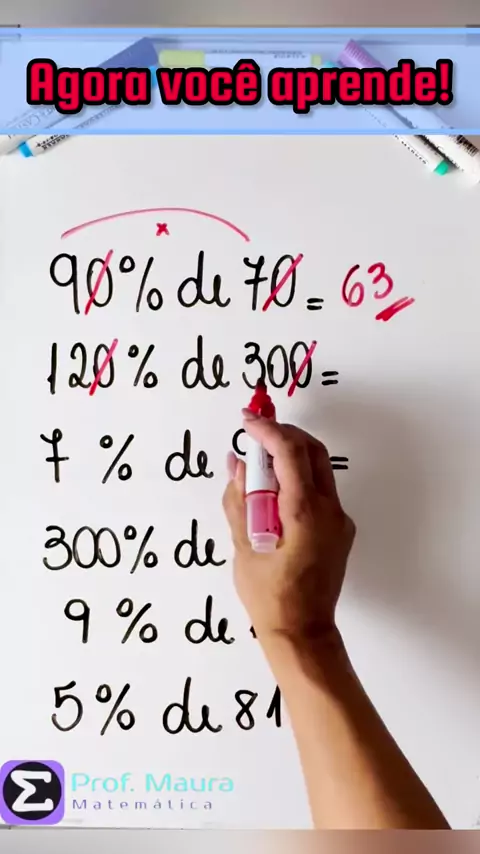 Agora você aprende!
x
90% de 70 = 63
120% de 300 =
7 % de =
300% de
9 % de
5% de 81
Σ Prof. Maura
Matemática